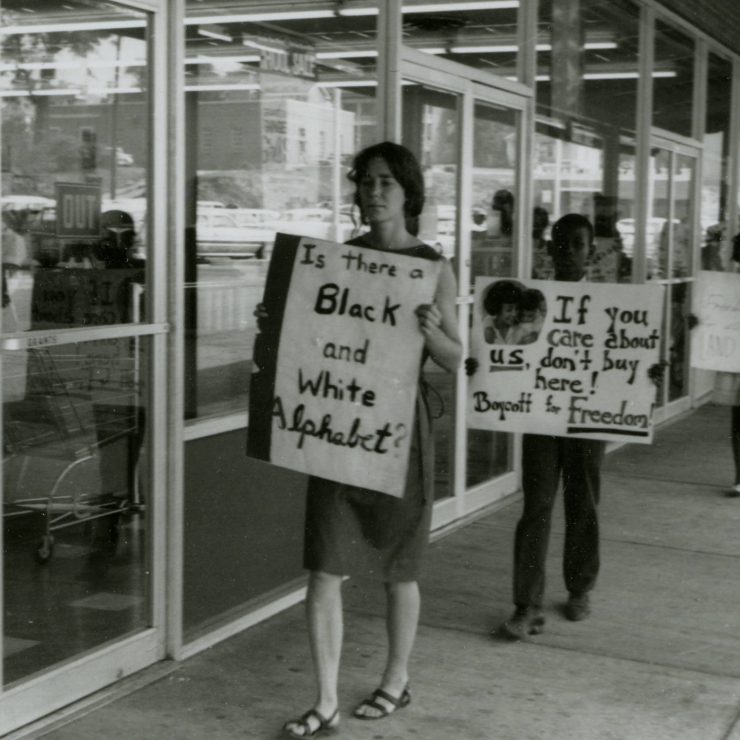 SCHOOL SALE
OUT
GRANTS
Is there a
Black
and
White
Alphabet?
If you
care about
us, don't buy
here!
Boycott for Freedom!